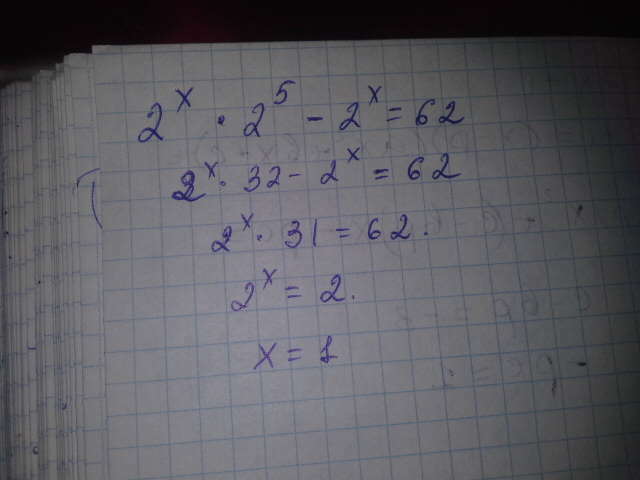 2^x · 2^5 - 2^x = 62
2^x · 32 - 2^x = 62
2^x · 31 = 62.
2^x = 2.
x = 1